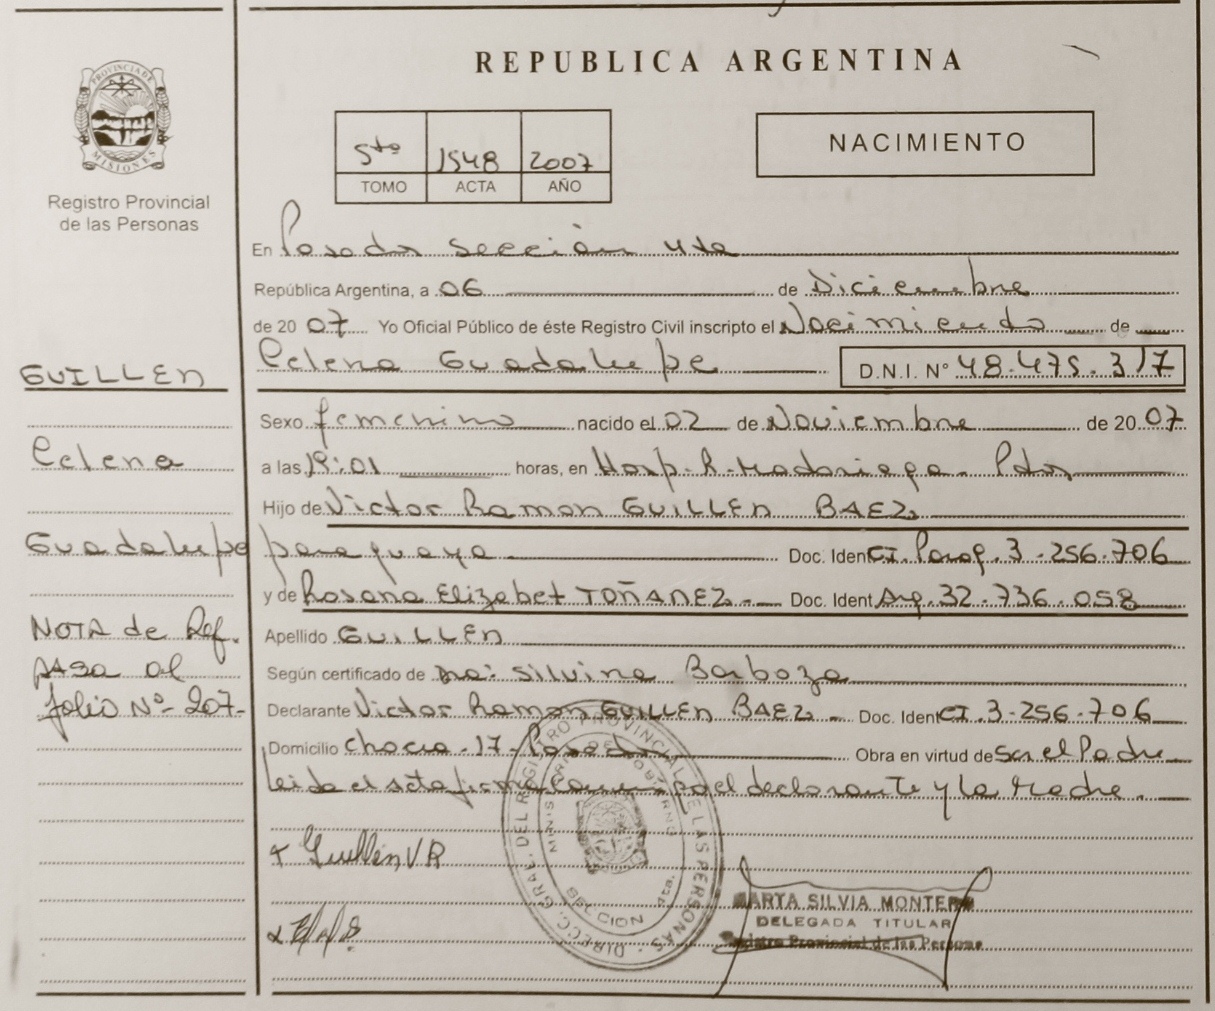 REPUBLICA ARGENTINA
PROVINCIA DE MISIONES
Registro Provincial
de las Personas
5to 1548 2007
TOMO ACTA AÑO
NACIMIENTO
En Posadas sección 4ta
República Argentina, a 06 de Diciembre
de 2007 Yo Oficial Público de éste Registro Civil inscripto el Nacimiento de
Celena Guadalupe D.N.I. N° 48.475.317
GUILLEN
Celena
Guadalupe
NOTA de Ref.
pasa al
folio Nº 207-
Sexo femenino nacido el 02 de Noviembre de 2007
a las 19:01 horas, en Hosp. R. Madariaga. Pdas
Hijo de Victor Ramon GUILLEN BAEZ
paraguaya Doc. Ident CI. Parag. 3-256.706
y de Rosana Elizabet TOÑANEZ Doc. Ident Arg. 32.736.058
Apellido GUILLEN
Según certificado de Silvina Barboza
Declarante Victor Ramon GUILLEN BAEZ Doc. Ident CI. 3-256.706
Domicilio Chacra 17-Posadas Obra en virtud de Ser el Padre
leida el acta firma el declarante y la Madre.
Guillen V R
DIRECC. GRAL. DEL REGISTRO PROVINCIAL DE LAS PERSONAS
MARTA SILVIA MONTERO
DELEGADA TITULAR
Registro Provincial de las Persona